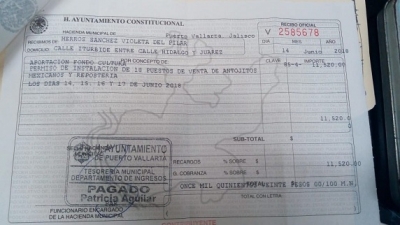 H. AYUNTAMIENTO CONSTITUCIONAL
HACIENDA MUNICIPAL DE Puerto Vallarta, Jalisco
RECIBO OFICIAL
V 2585678
RECIBIMOS DE HERROZ SANCHEZ VIOLETA DEL PILAR
DIA MES AÑO
DOMICILIO CALLE ITURBIDE ENTRE CALLE HIDALGO Y JUAREZ
14 Junio 2018
POR CONCEPTO DE CLAVE
APORTACION FONDO CULTURA 11,520.00
PERMISO DE INSTALACION DE 12 PUESTOS DE VENTA DE ANTOJITOS
MEXICANOS Y REPOSTERIA
LOS DIAS 14, 15, 16 Y 17 DE JUNIO 2018
11,520.0
SUB-TOTAL $
H. AYUNTAMIENTO
DE PUERTO VALLARTA
RECARGOS % SOBRE $
11,520.00
TESORERIA MUNICIPAL
DEPARTAMENTO DE INGRESOS
G. COBRANZA % SOBRE $
PAGADO
ONCE MIL QUINIENTOS VEINTE PESOS 00/100 M.N.
Patricia Aguilar
GRAN TOTAL CON LETRA
FUNCIONARIO ENCARGADO
DE LA HACIENDA MUNICIPAL